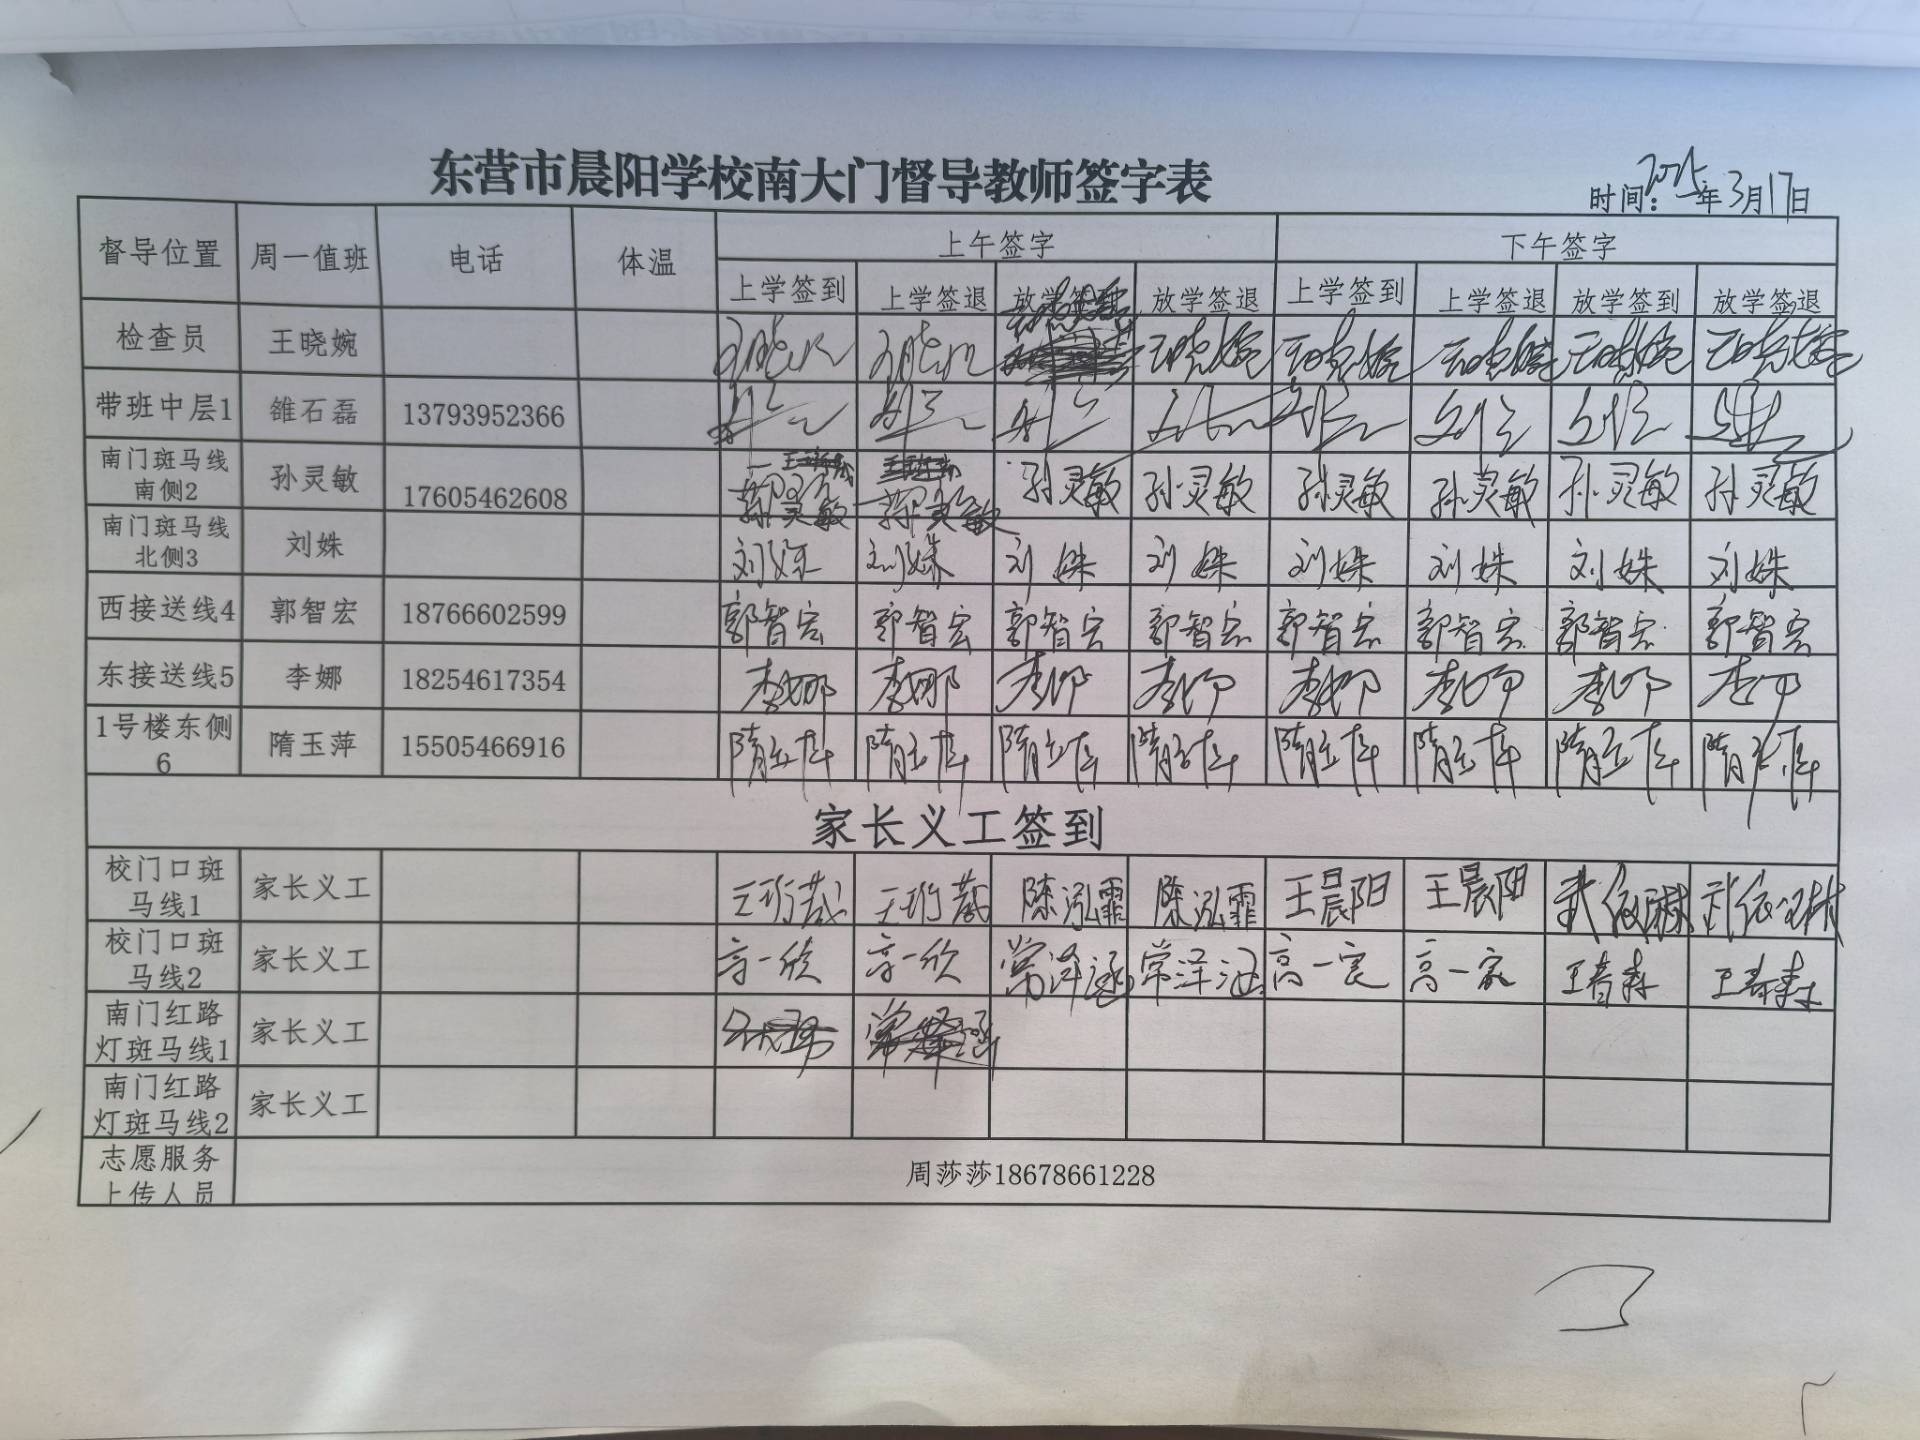 东营市晨阳学校南大门督导教师签字表
时间：2025年3月17日
督导位置 周一值班 电话 体温 上午签字 下午签字
上学签到 上学签退 放学签到 放学签退 上学签到 上学签退 放学签到 放学签退
检查员 王晓婉 王晓婉 王晓婉 王晓婉 王晓婉 王晓婉 王晓婉
带班中层1 雒石磊 13793952366
南门斑马线
南侧2 孙灵敏 17605462608 孙灵敏 孙灵敏 孙灵敏 孙灵敏 孙灵敏 孙灵敏
南门斑马线
北侧3 刘姝 刘姝 刘姝 刘姝 刘姝 刘姝 刘姝 刘姝 刘姝
西接送线4 郭智宏 18766602599 郭智宏 郭智宏 郭智宏 郭智宏 郭智宏 郭智宏 郭智宏 郭智宏
东接送线5 李娜 18254617354 李娜 李娜 李娜 李娜 李娜 李娜 李娜 李娜
1号楼东侧
6 隋玉萍 15505466916 隋玉萍 隋玉萍 隋玉萍 隋玉萍 隋玉萍 隋玉萍 隋玉萍 隋玉萍
家长义工签到
校门口斑
马线1 家长义工 陈泓霏 陈泓霏 王晨阳 王晨阳
校门口斑
马线2 家长义工 高一欣 高一欣 常泽涵 常泽涵 高一宸
南门红路
灯斑马线1 家长义工
南门红路
灯斑马线2 家长义工
志愿服务
上传人员 周莎莎18678661228